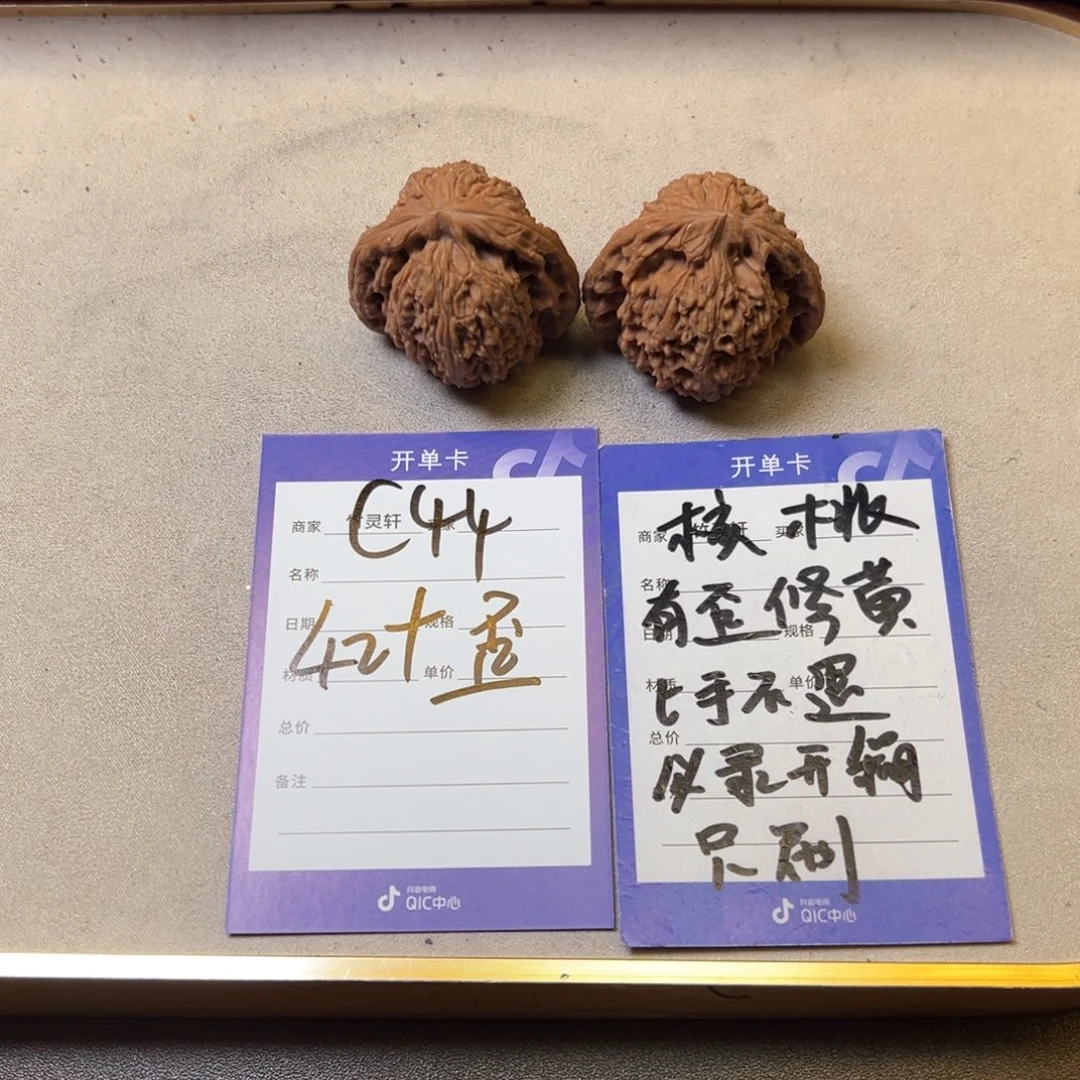 开单卡
C44
商家 竹灵轩
名称
42+歪
日期 规格
材质 单价
总价
备注
抖音电商
QIC中心
开单卡
核桃
商家 轩 买家
名称
有歪修黄
日期 规格
上手不退
材质 单价
总价
必录开箱
只刷
抖音电商
QIC中心